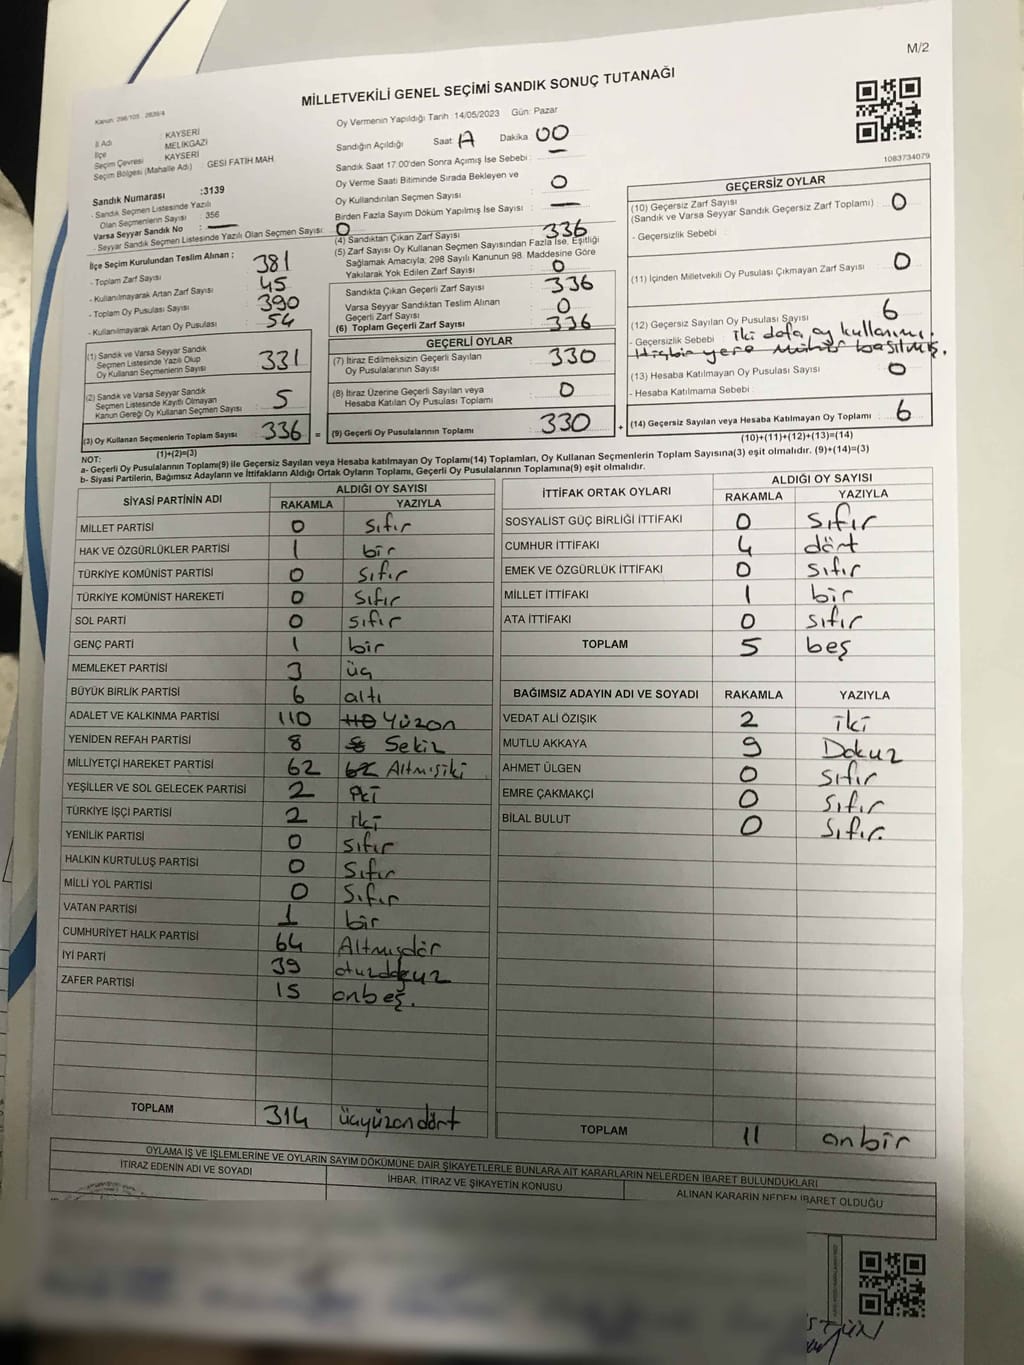 M/2
MİLLETVEKİLİ GENEL SEÇİMİ SANDIK SONUÇ TUTANAĞI
Kanun: 298/105
İl Adı : KAYSERİ
İlçe : MELİKGAZİ
Seçim Çevresi : KAYSERİ
Seçim Bölgesi (Mahalle Adı) : GESİ FATİH MAH.
Sandık Numarası :3139
- Sandık Seçmen Listesinde Yazılı
Olan Seçmenlerin Sayısı : 356
Varsa Seyyar Sandık No : —
- Seyyar Sandık Seçmen Listesinde Yazılı Olan Seçmen Sayısı: 0
İlçe Seçim Kurulundan Teslim Alınan ;
- Toplam Zarf Sayısı : 381
- Kullanılmayarak Artan Zarf Sayısı : 45
- Toplam Oy Pusulası Sayısı : 390
- Kullanılmayarak Artan Oy Pusulası : 54
(1) Sandık ve Varsa Seyyar Sandık
Seçmen Listesinde Yazılı Olup
Oy Kullanan Seçmenlerin Sayısı : 331
(2) Sandık ve Varsa Seyyar Sandık
Seçmen Listesinde Kayıtlı Olmayan
Kanun Gereği Oy Kullanan Seçmen Sayısı : 5
(3) Oy Kullanan Seçmenlerin Toplam Sayısı : 336 =
(1)+(2)=(3)
Oy Vermenin Yapıldığı Tarih : 14/05/2023 Gün: Pazar
Sandığın Açıldığı Saat: Dakika : 00
Sandık Saat 17:00'den Sonra Açımış İse Sebebi : —
Oy Verme Saati Bitiminde Sırada Bekleyen ve
Oy Kullandırılan Seçmen Sayısı : 0
Birden Fazla Sayım Döküm Yapılmış İse Sayısı : —
(4) Sandıktan Çıkan Zarf Sayısı : 336
(5) Zarf Sayısı Oy Kullanan Seçmen Sayısından Fazla İse, Eşitliği
Sağlamak Amacıyla, 298 Sayılı Kanunun 98. Maddesine Göre
Yakılarak Yok Edilen Zarf Sayısı : 0
Sandıkta Çıkan Geçerli Zarf Sayısı : 336
Varsa Seyyar Sandıktan Teslim Alınan
Geçerli Zarf Sayısı : 0
(6) Toplam Geçerli Zarf Sayısı : 336
GEÇERLİ OYLAR
(7) İtiraz Edilmeksizin Geçerli Sayılan
Oy Pusulalarının Sayısı : 330
(8) İtiraz Üzerine Geçerli Sayılan veya
Hesaba Katılan Oy Pusulası Toplamı : 0
(9) Geçerli Oy Pusulalarının Toplamı : 330 +
1083734079
GEÇERSİZ OYLAR
(10) Geçersiz Zarf Sayısı
(Sandık ve Varsa Seyyar Sandık Geçersiz Zarf Toplamı) : 0
- Geçersizlik Sebebi :
(11) İçinden Milletvekili Oy Pusulası Çıkmayan Zarf Sayısı : 0
(12) Geçersiz Sayılan Oy Pusulası Sayısı : 6
- Geçersizlik Sebebi : iki defa oy kullanımı.
Hiçbir yere mühür basılmış.
(13) Hesaba Katılmayan Oy Pusulası Sayısı : 0
- Hesaba Katılmama Sebebi :
(14) Geçersiz Sayılan veya Hesaba Katılmayan Oy Toplamı : 6
(10)+(11)+(12)+(13)=(14)
NOT:
a- Geçerli Oy Pusulalarının Toplamı(9) ile Geçersiz Sayılan veya Hesaba katılmayan Oy Toplamı(14) Toplamları, Oy Kullanan Seçmenlerin Toplam Sayısına(3) eşit olmalıdır. (9)+(14)=(3)
b- Siyasi Partilerin, Bağımsız Adayların ve İttifakların Aldığı Ortak Oyların Toplamı, Geçerli Oy Pusulalarının Toplamına(9) eşit olmalıdır.
SİYASİ PARTİNİN ADI ALDIĞI OY SAYISI
RAKAMLA YAZIYLA
MİLLET PARTİSİ 0 sıfır
HAK VE ÖZGÜRLÜKLER PARTİSİ 1 bir
TÜRKİYE KOMÜNİST PARTİSİ 0 sıfır
TÜRKİYE KOMÜNİST HAREKETİ 0 sıfır
SOL PARTİ 0 sıfır
GENÇ PARTİ 1 bir
MEMLEKET PARTİSİ 3 üç
BÜYÜK BİRLİK PARTİSİ 6 altı
ADALET VE KALKINMA PARTİSİ 110 110 Yüzon
YENİDEN REFAH PARTİSİ 8 8 Sekiz
MİLLİYETÇİ HAREKET PARTİSİ 62 62 Altmışiki
YEŞİLLER VE SOL GELECEK PARTİSİ 2 iki
TÜRKİYE İŞÇİ PARTİSİ 2 iki
YENİLİK PARTİSİ 0 sıfır
HALKIN KURTULUŞ PARTİSİ 0 sıfır
MİLLİ YOL PARTİSİ 0 sıfır
VATAN PARTİSİ 1 bir
CUMHURİYET HALK PARTİSİ 64 Altmışdör
İYİ PARTİ 39 otuzdokuz
ZAFER PARTİSİ 15 onbeş.
TOPLAM 314 üçyüzondört
İTTİFAK ORTAK OYLARI ALDIĞI OY SAYISI
RAKAMLA YAZIYLA
SOSYALİST GÜÇ BİRLİĞİ İTTİFAKI 0 sıfır
CUMHUR İTTİFAKI 4 dört
EMEK VE ÖZGÜRLÜK İTTİFAKI 0 sıfır
MİLLET İTTİFAKI 1 bir
ATA İTTİFAKI 0 sıfır
TOPLAM 5 beş
BAĞIMSIZ ADAYIN ADI VE SOYADI RAKAMLA YAZIYLA
VEDAT ALİ ÖZIŞIK 2 iki
MUTLU AKKAYA 9 Dokuz
AHMET ÜLGEN 0 sıfır
EMRE ÇAKMAKÇİ 0 sıfır
BİLAL BULUT 0 sıfır
TOPLAM 11 onbir
OYLAMA İŞ VE İŞLEMLERİNE VE OYLARIN SAYIM DÖKÜMÜNE DAİR ŞİKAYETLERLE BUNLARA AİT KARARLARIN NELERDEN İBARET BULUNDUKLARI
İTİRAZ EDENİN ADI VE SOYADI İHBAR, İTİRAZ VE ŞİKAYETİN KONUSU ALINAN KARARIN NEDEN İBARET OLDUĞU